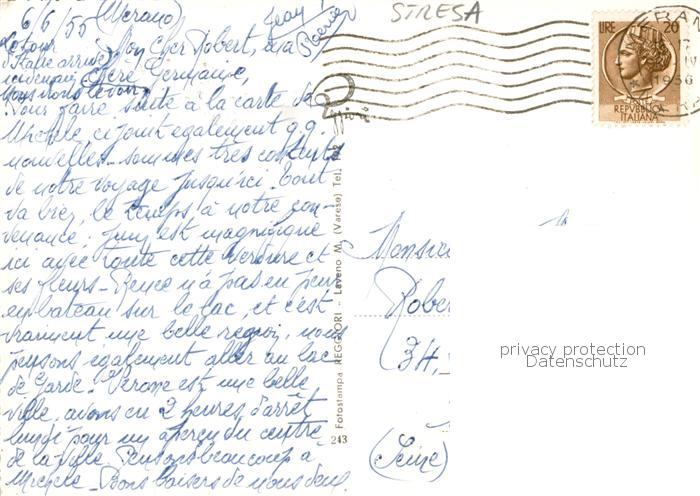 6/6/55 (Merano)
Jean
Renée
STRESA
Le tour
d'Italie arrive
ici demain
nous nous levons
Mon Cher Robert,
Chère Germaine,
Pour faire suite à la carte de
Michèle, ci joint également q.q.
nouvelles - sommes très contents
de notre voyage jusqu'ici. Tout
va bien, le temps à notre con-
venance; juin est magnifique
ici avec toute cette verdure et
ses fleurs - Renée n'a pas eu peur
en bateau sur le lac, et c'est
vraiment une belle région, nous
pensons également aller au lac
de Garde. Verone est une belle
ville, avons eu 2 heures d'arrêt
lundi pour un aperçu du centre
de la ville. Pensons beaucoup à
Michèle - Bons baisers de nous deux.
Fotostampa REGGIORI - Laveno M. (Varese) Tel.
243
LIRE 20
REPVBBLICA
ITALIANA
1956
Monsieu
Rober
34,
(Seine)
privacy protection
Datenschutz